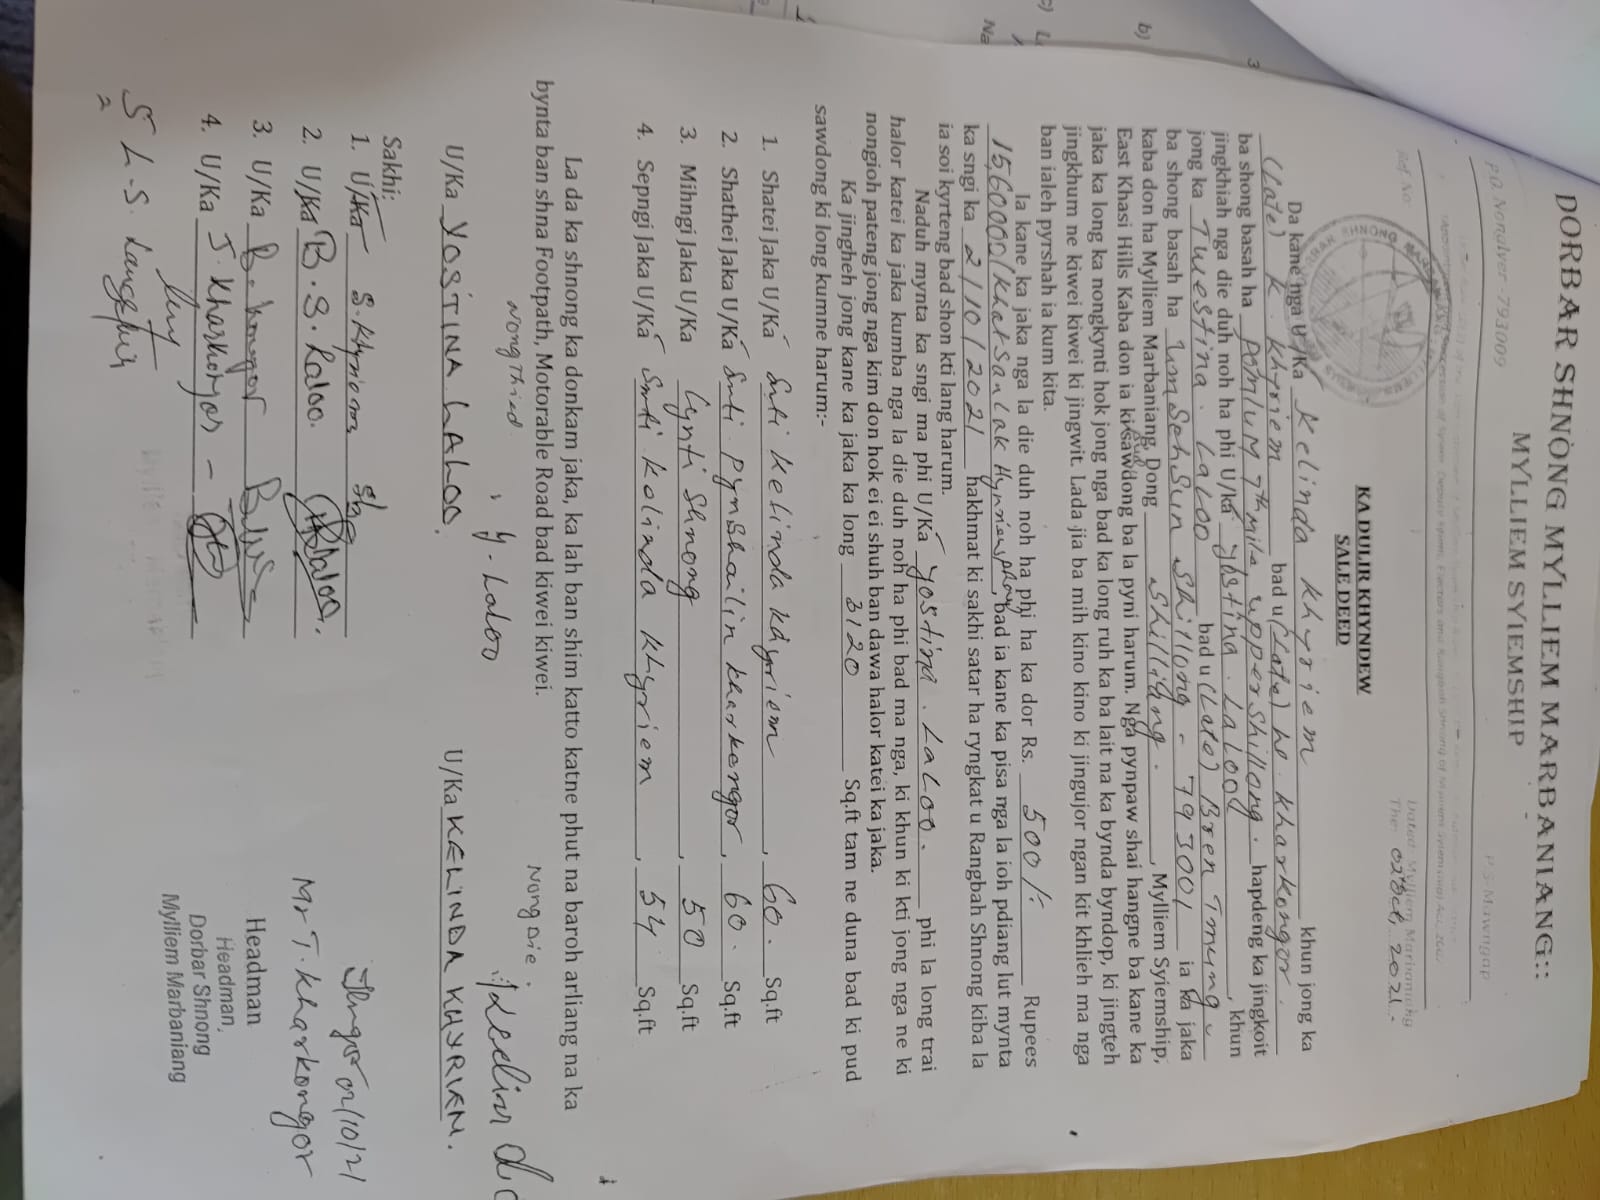 DORBAR SHNONG MYLLIEM MARBANIANG::
MYLLIEM SYIEMSHIP
P.O. Nonglyer -793009 P.S-Mawngap
Ref. No: Dated. Mylliem Marbaniang
The: 02 Oct, 2021
KA DULIR KHYNDEW
SALE DEED
Da kane nga U/Ka Kelinda Khyriem khun jong ka
(Late) K. Khyriem bad u (Late) ho. Kharkongor.
ba shong basah ha Pomlum 7thmile, upper shillong. hapdeng ka jingkoit
jingkhiah nga die duh noh ha phi U/Ka Yostina. Laloo, khun
jong ka Twestina. Laloo bad u (Late) Bren Tmung
ba shong basah ha UmSohSun Shillong - 793001 ia ka jaka
kaba don ha Mylliem Marbaniang, Dong Shilliang., Mylliem Syiemship,
East Khasi Hills Kaba don ia ki sawdong ba la pyni harum. Nga pynpaw shai hangne ba kane ka
jaka ka long ka nongkynti hok jong nga bad ka long ruh ka ba lait na ka bynda byndop, ki jingteh
jingkhum ne kiwei kiwei ki jingwit. Lada jia ba mih kino kino ki jingujor ngan kit khlieh ma nga
ban ialeh pyrshah ia kum kita.
Ia kane ka jaka nga la die duh noh ha phi ha ka dor Rs. 500/- Rupees
15,60000/Khatsanlak Hynriewphew, bad ia kane ka pisa nga la ioh pdiang lut mynta
ka sngi ka 2/10/2021 hakhmat ki sakhi satar ha ryngkat u Rangbah Shnong kiba la
ia soi kyrteng bad shon kti lang harum.
Naduh mynta ka sngi ma phi U/Ka Yostina. Laloo. phi la long trai
halor katei ka jaka kumba nga la die duh noh ha phi bad ma nga, ki khun ki kti jong nga ne ki
nongioh pateng jong nga kim don hok ei ei shuh ban dawa halor katei ka jaka.
Ka jingheh jong kane ka jaka ka long 3120 Sq.ft tam ne duna bad ki pud
sawdong ki long kumne harum:-
1. Shatei Jaka U/Ka Smti Kelinda Khyriem, 60. Sq.ft
2. Shathei Jaka U/Ka Smti. Pynshailin Kharkongor, 60. Sq.ft
3. Mihngi Jaka U/Ka Lynti Shnong, 50 Sq.ft
4. Sepngi Jaka U/Ka Smti. Kolinda Khyriem, 54 Sq.ft
La da ka shnong ka donkam jaka, ka lah ban shim katto katne phut na baroh arliang na ka
bynta ban shna Footpath, Motorable Road bad kiwei kiwei.
Nongthied Nong Die.
Y. Laloo
U/Ka YOSTINA LALOO. U/Ka KELINDA KHYRIEM.
Sakhi:
1. U/Ka S. Khyriem
2. U/Ka B. S. Laloo.
3. U/Ka B. Kongor
4. U/Ka J. Kharkongor -
Mr T. Kharkongor
Headman
Headman,
Dorbar Shnong
Mylliem Marbaniang